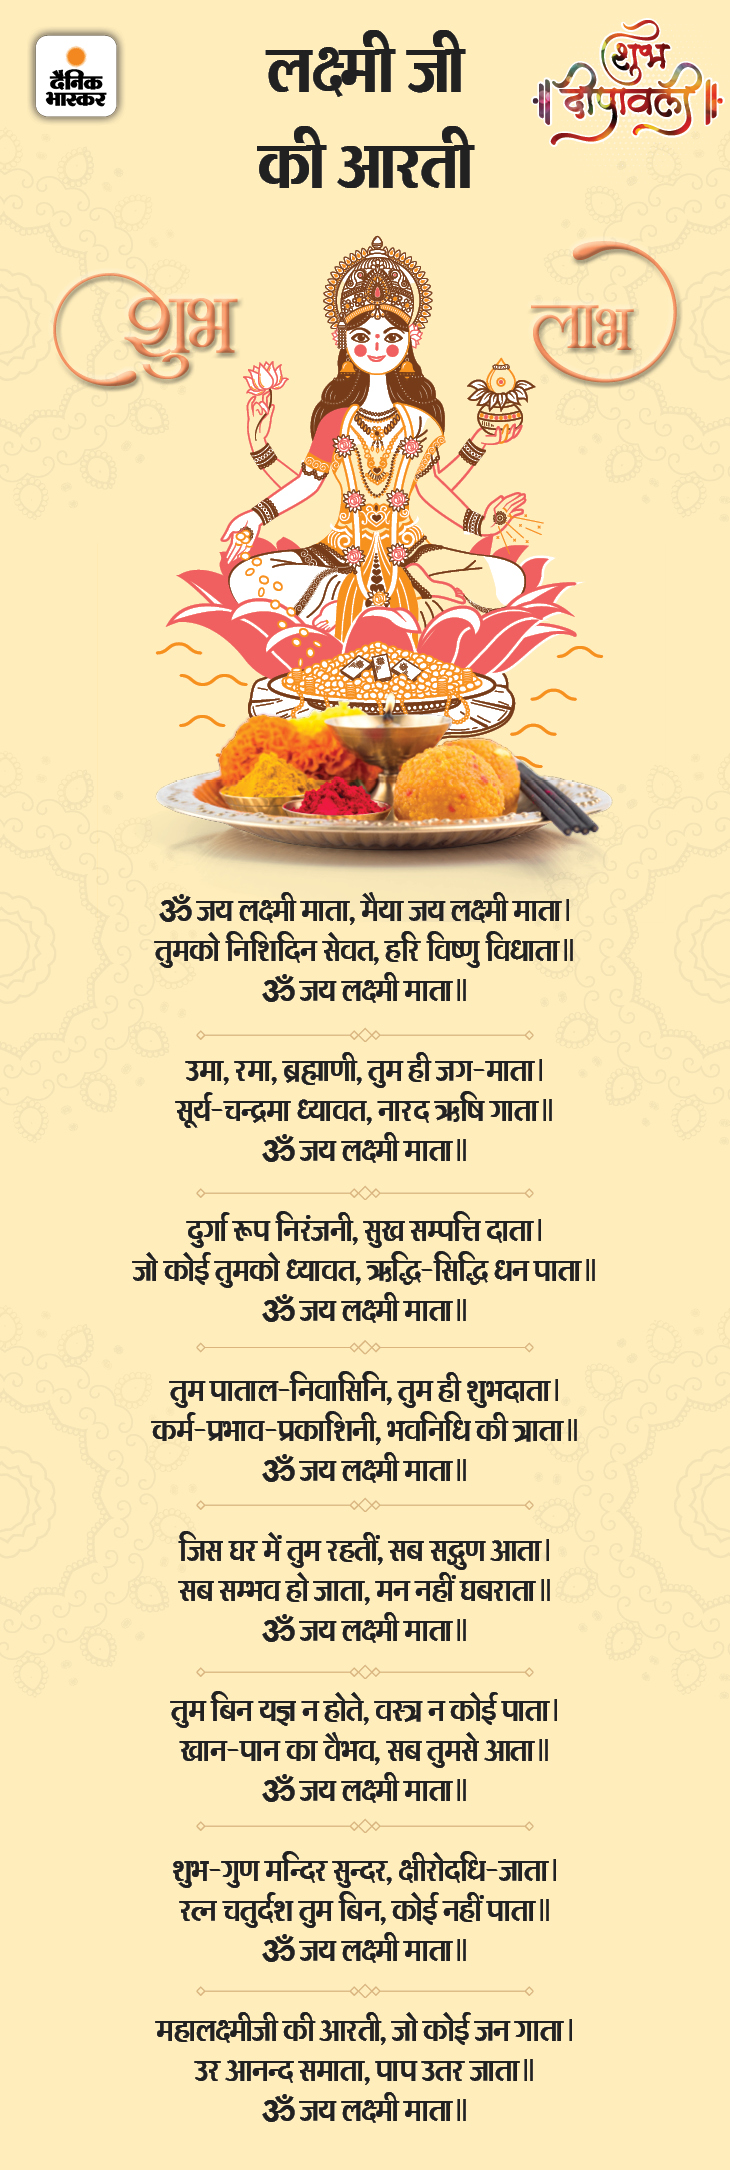 दैनिक
भास्कर
लक्ष्मी जी
की आरती
शुभ
दीपावली
शुभ
लाभ
ॐ जय लक्ष्मी माता, मैया जय लक्ष्मी माता।
तुमको निशिदिन सेवत, हरि विष्णु विधाता॥
ॐ जय लक्ष्मी माता॥
उमा, रमा, ब्रह्माणी, तुम ही जग-माता।
सूर्य-चन्द्रमा ध्यावत, नारद ऋषि गाता॥
ॐ जय लक्ष्मी माता॥
दुर्गा रूप निरंजनी, सुख सम्पत्ति दाता।
जो कोई तुमको ध्यावत, ऋद्धि-सिद्धि धन पाता॥
ॐ जय लक्ष्मी माता॥
तुम पाताल-निवासिनि, तुम ही शुभदाता।
कर्म-प्रभाव-प्रकाशिनी, भवनिधि की त्राता॥
ॐ जय लक्ष्मी माता॥
जिस घर में तुम रहतीं, सब सद्गुण आता।
सब सम्भव हो जाता, मन नहीं घबराता॥
ॐ जय लक्ष्मी माता॥
तुम बिन यज्ञ न होते, वस्त्र न कोई पाता।
खान-पान का वैभव, सब तुमसे आता॥
ॐ जय लक्ष्मी माता॥
शुभ-गुण मन्दिर सुन्दर, क्षीरोदधि-जाता।
रत्न चतुर्दश तुम बिन, कोई नहीं पाता॥
ॐ जय लक्ष्मी माता॥
महालक्ष्मीजी की आरती, जो कोई जन गाता।
उर आनन्द समाता, पाप उतर जाता॥
ॐ जय लक्ष्मी माता॥